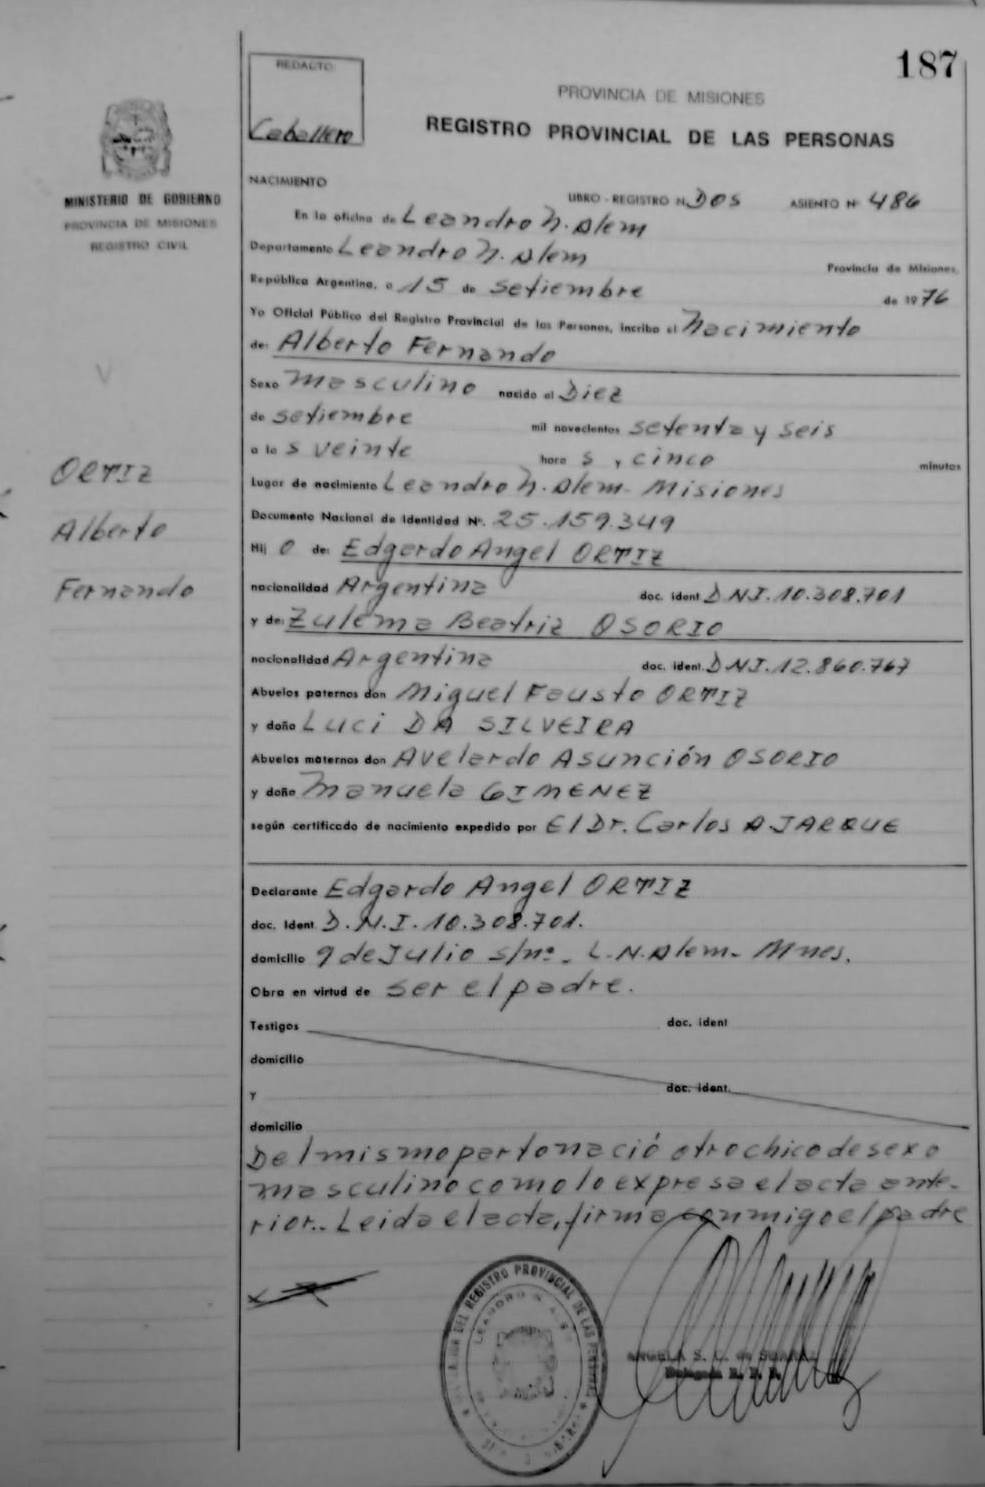 187
REDACTO
Caballero
PROVINCIA DE MISIONES
REGISTRO PROVINCIAL DE LAS PERSONAS
MINISTERIO DE GOBIERNO
PROVINCIA DE MISIONES
REGISTRO CIVIL
NACIMIENTO
LIBRO - REGISTRO N. DOS ASIENTO Nº 486
En la oficina de Leandro N. Alem
Departamento Leandro N. Alem Provincia de Misiones,
República Argentina, a 15 de setiembre de 1976
Yo Oficial Público del Registro Provincial de las Personas, incribo el Nacimiento
de: Alberto Fernando
Sexo masculino nacido el Diez
de setiembre mil novecientos setenta y seis
a las veinte horas y cinco minutos
Lugar de nacimiento Leandro N. Alem - Misiones
Documento Nacional de Identidad Nº. 25.159.349
Hijo de: Edgardo Angel ORTIZ
nacionalidad Argentina doc. ident. DNI. 10.308.701
y de: Zulema Beatriz OSORIO
nacionalidad Argentina doc. ident. DNI. 12.860.767
Abuelos paternos don Miguel Fausto ORTIZ
y doña Luci DA SILVEIRA
Abuelos maternos don Avelardo Asunción OSORIO
y doña Manuela GIMENEZ
según certificado de nacimiento expedido por El Dr. Carlos A JARQUE
ORTIZ
Alberto
Fernando
Declarante Edgardo Angel ORTIZ
doc. ident. D.N.I. 10.308.701.
domicilio 9 de Julio s/nº. L.N. Alem. Mnes.
Obra en virtud de ser el padre.
Testigos doc. ident
domicilio
y doc. ident.
domicilio
Del mismo parto nació otro chico de sexo
masculino como lo expresa el acta ante-
rior.. Leida el acta, firma conmigo el padre
DEL REGISTRO PROVINCIAL DE LAS PERSONAS
LEANDRO N. ALEM
ANGELA S. C. de SUAREZ
Delegada R. P. P.